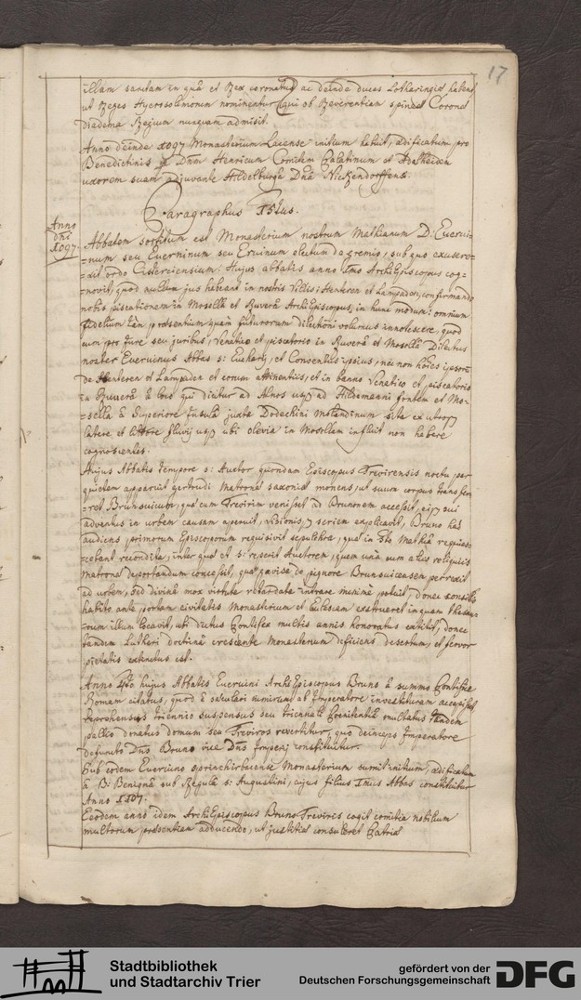 17
illam sanctam in quâ et Rex coronatur, ac deinde duces Lotharingiæ habent
ut Reges Hyerosolimorum nominentur, qui ob Reverentiam spineæ Coronæ
diadema Regium nunquam admisit.
Anno deinde 1093 Monasterium Lacense initium habuit, ædificatum pro
Benedictinis à Dno Henrico Comitem Palatinum et Adelheidem
uxorem suam adjuvante Hildelburga Dnâ
Paragraphus 15tus.
Anno
dni
1097.
Abbatem sortitum est Monasterium nostrum Mathianum D: Everwi-
=num, seu Everminum seu Ervinum electum de gremio, sub quo
ordo Cisterciensium: Hujus abbatis anno 1mo ArchiEpiscopus cog-
=novit, quod nullum jus habeant in nostris villis: Henteren et Lampaden, confirmando
nobis piscationem in Mosellâ et Ruverâ ArchiEpiscopus, in hunc modum: omnium
fidelium tam præsentium quàm futurorum dilectioni volumus innotescere, quod
cum pro jure seu juribus, venatico et piscatorio in Ruverâ et Mosellâ Dilectus
noster Everwinus Abbas s: Eucharij, et Conventus ipsius, nec non hoies ipsoru
de Henteren et Lampaden et eorum attinentiis, et in banno venatico et piscatorio
in Ruverâ à loco qui dicitur ad Alnos usque ad Hildemanni fontem et Mo-
=sella à Superiore Insulâ juxta Dodechini molendinum sita ex utroque
latere et littore fluvij usque ubi olevia in Mosellam influit non habere
cognoscentes.
Hujus Abbatis tempore s: Auctor quondam Episcopus Trevirensis noctu per
quietem apparuit gertrudi Matronæ saxoniæ monens, ut suum corpus transfer-
=ret Brunsvicum, quæ cum Trevirim venisset ad Brunonem accessit, eique sui
adventus in urbem causam aperuit, visionis seriem explicavit, Bruno hæc
audiens, primorum Episcoporum requisivit sepulchra, quæ in Sto Mathia requies-
=cebant recondita, inter quos et s: reperit Auctorem, quem unà cum aliis reliquiis
matronæ deportandum concessit, quæ gavisa de pignore Brunsuicensem perrexit
ad urbem, sed divinâ mox virtute retardata intrare minimè potuit, donec consilio
habito ante portam civitatis Monasterium et Ecclesiam extrueret in quam thesau-
=rum illum locavit, ubi dictus Pontifex multis annis honoratus extitit, donec
tandem Lutheri doctrinâ crescente monasterium deficiens desertum, et fervor
pietatis extinctus est.
Anno 4to hujus Abbatis Everwini ArchiEpiscopus Bruno à summo Pontifice
Romam citatus, quod à sæculari nimirum ab Imperatore investituram accepisset
reprehensus triennio suspensus seu triennali Pœnitentiâ mulctatus tandem
pallio donatus domum seu Treviros revertitur, quo deinceps Imperatore
defuncto Dnus Bruno vice Dnus Imperij constituitur.
Sub eodem Everwino sprinckirbacense Monasterium sumit initium, ædificatum
à B: Benigna sub Regula s: Augustini, cujus filius 1mus Abbas constituitur
Anno 1107.
Eodem anno idem ArchiEpiscopus Bruno Treviris cogit comitia nobilium
multorum præsentiam adducendo, ut justitiæ consuleret Patriæ
Stadtbibliothek
und Stadtarchiv Trier
gefördert von der
Deutschen Forschungsgemeinschaft
DFG